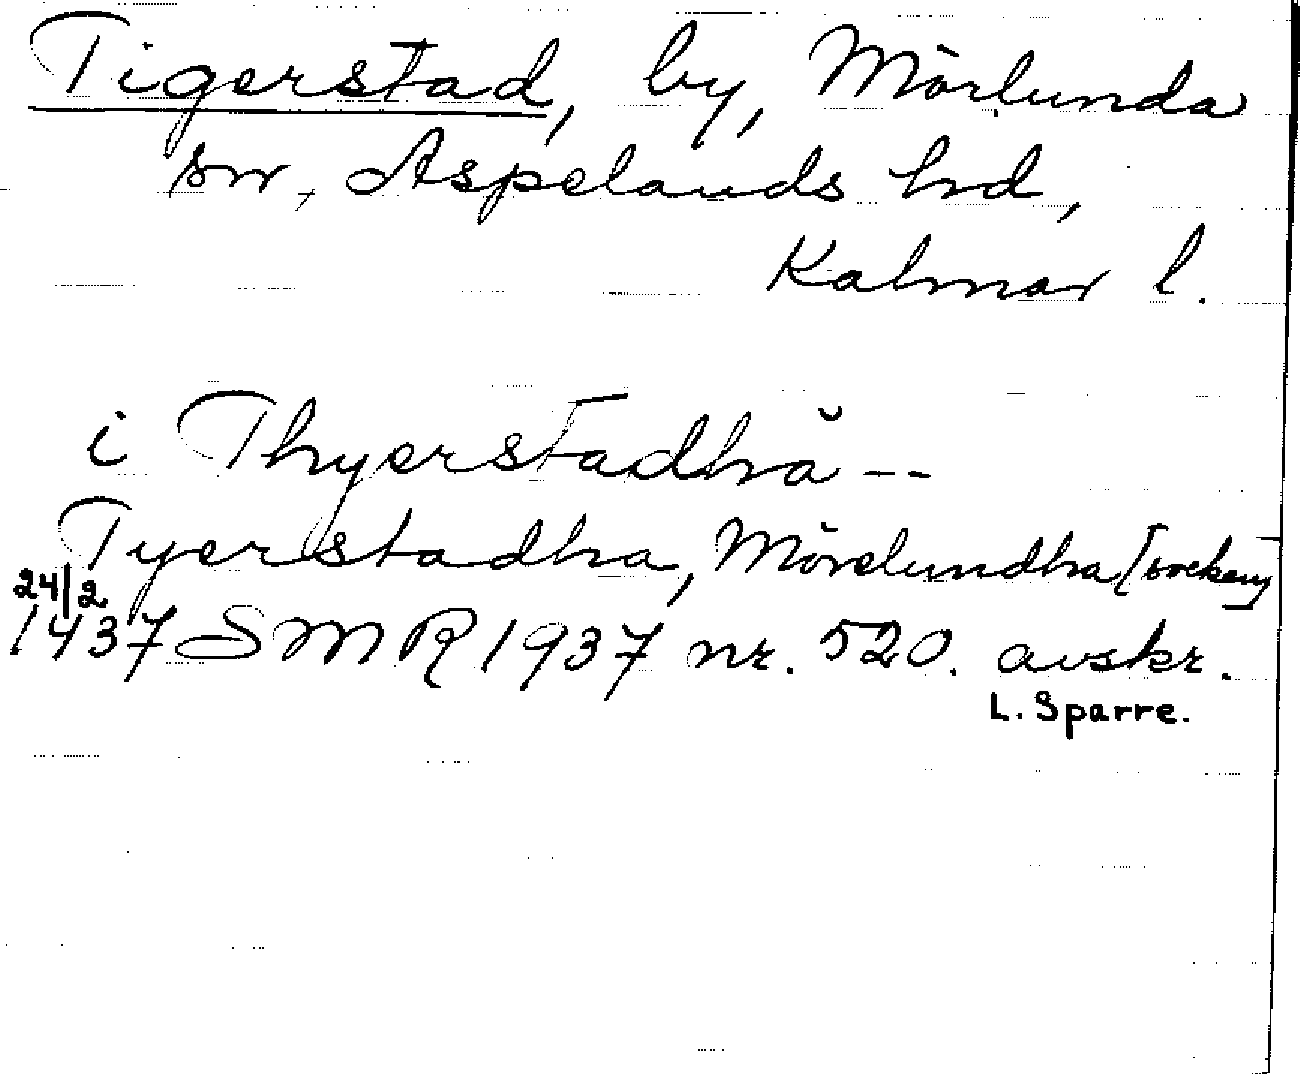 Tigerstad, by, Mörlunda
sn, Aspelands hd,
Kalmar l.
i Thyerstadhä --
Tyerstadha, Mörelundha [socken]
24/2
1437 SMR 1937 nr. 520. avskr.
L. Sparre.